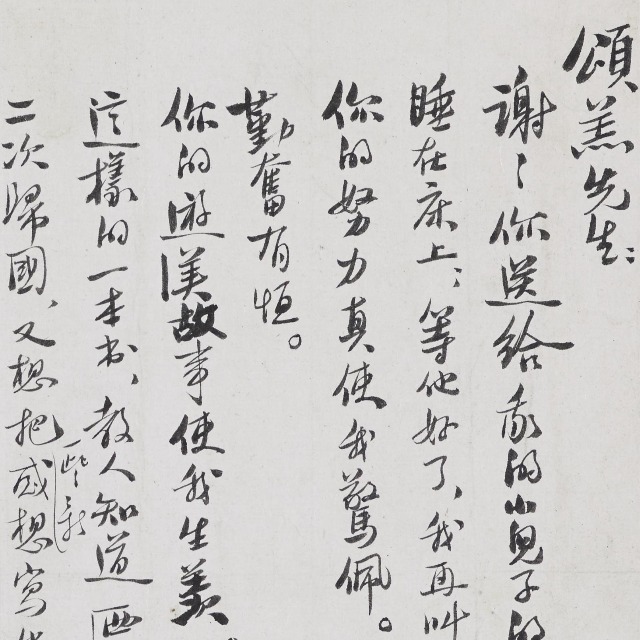 頌羔先生：
谢谢你送给我的小兒子的
睡在床上；等他好了，我再叫
你的努力真使我驚佩。
勤奮有恒。
你的遊美故事使我生羨
這樣的一本书，教人知道西
一些新
二次歸國，又想把感想寫